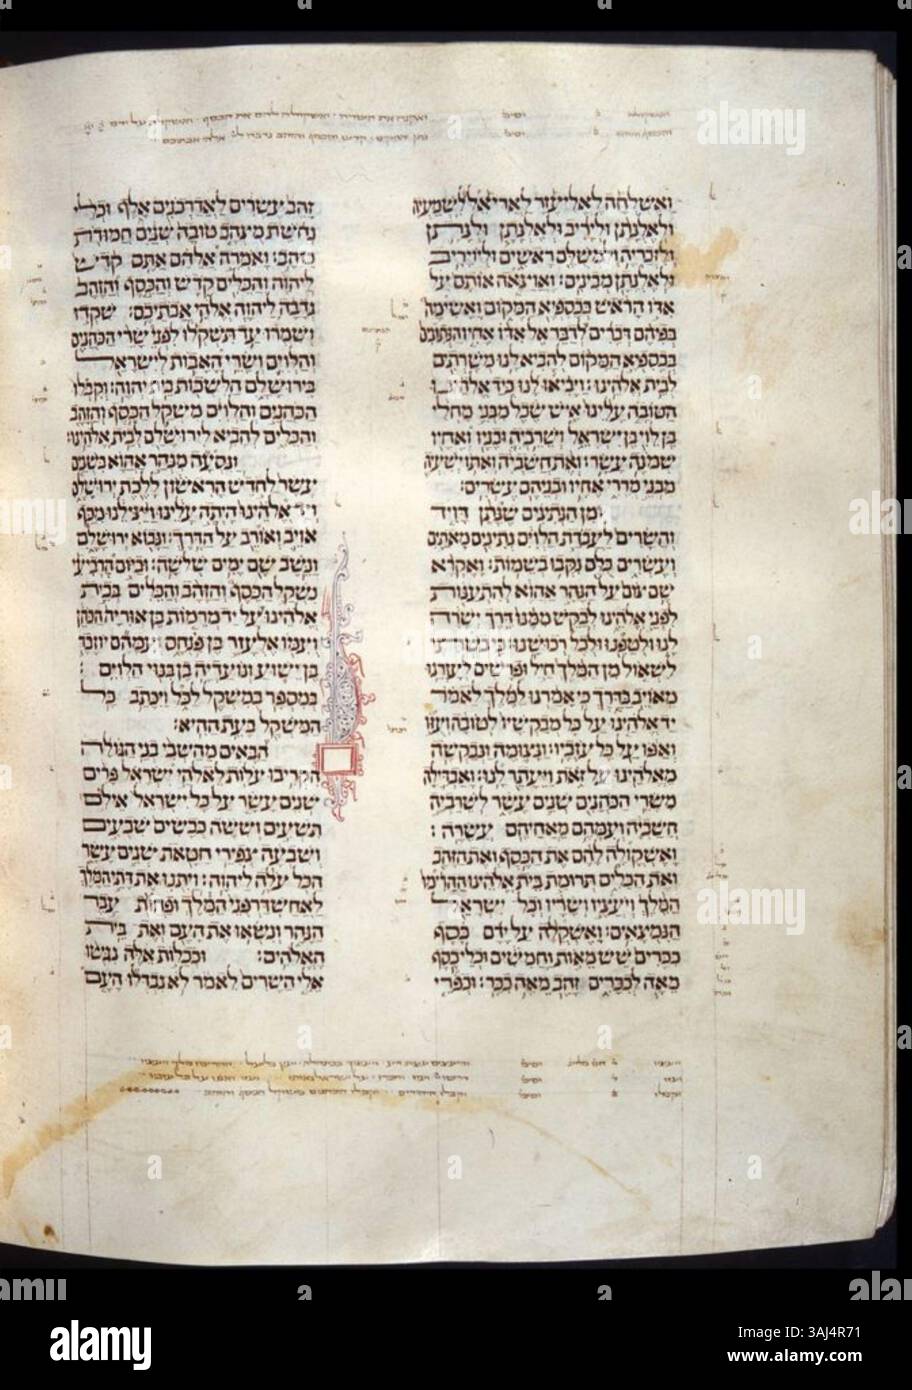 ואשלחה לאליעזר לאריאל לשמעיה
ולאלנתן וליריב ולאלנתן ולנתן
ולזכריה ולמשלם ראשים וליויריב
ולאלנתן מבינים: ואוצאה אותם על
אדו הראש בכספיא המקום ואשימה
בפיהם דברים לדבר אל אדו אחיו הנתונים
בכספיא המקום להביא לנו משרתים
לבית אלהינו: ויביאו לנו כיד אלהינו
הטובה עלינו איש שכל מבני מחלי
בן לוי בן ישראל ושרביה ובניו ואחיו
שמנה עשר: ואת חשביה ואתו ישעיה
מבני מררי אחיו ובניהם עשרים:
ומן הנתינים שנתן דויד
והשרים לעבדת הלוים נתינים מאתים
ועשרים כלם נקבו בשמות: ואקרא
שם צום על הנהר אהוא להתענות
לפני אלהינו לבקש ממנו דרך ישרה
לנו ולטפנו ולכל רכושנו: כי בשתי
לשאול מן המלך חיל ופרשים לעזרנו
מאויב בדרך כי אמרנו למלך לאמר
יד אלהינו על כל מבקשיו לטובה ועזו
ואפו על כל עזביו: ונצומה ונבקשה
מאלהינו על זאת ויעתר לנו: ואבדילה
משרי הכהנים שנים עשר לשרביה
חשביה ועמהם מאחיהם עשרה:
ואשקולה להם את הכסף ואת הזהב
ואת הכלים תרומת בית אלהינו ההרימו
המלך ויעציו ושריו וכל ישראל
הנמצאים: ואשקלה על ידם כסף
ככרים שש מאות וחמשים וכלי כסף
מאה לככרים זהב מאה ככר: וכפרי
זהב עשרים לאדרכנים אלף וכלי
נחשת מצהב טובה שנים חמודת
כזהב: ואמרה אלהם אתם קדש
ליהוה והכלים קדש והכסף והזהב
נדבה ליהוה אלהי אבתיכם: שקדו
ושמרו עד תשקלו לפני שרי הכהנים
והלוים ושרי האבות לישראל
בירושלם הלשכות בית יהוה: וקבלו
הכהנים והלוים משקל הכסף והזהב
והכלים להביא לירושלם לבית אלהינו:
ונסעה מנהר אהוא בשנים
עשר לחדש הראשון ללכת ירושלם
ויד אלהינו היתה עלינו ויצילנו מכף
אויב ואורב על הדרך: ונבוא ירושלם
ונשב שם ימים שלשה: וביום הרביעי
נשקל הכסף והזהב והכלים בבית
אלהינו על יד מרמות בן אוריה הכהן
ועמו אלעזר בן פנחס ועמהם יוזבד
בן ישוע ונועדיה בן בנוי הלוים:
במספר במשקל לכל ויכתב כל
המשקל בעת ההיא:
הבאים מהשבי בני הגולה
הקריבו עלות לאלהי ישראל פרים
שנים עשר על כל ישראל אילם
תשעים וששה כבשים שבעים
ושבעה צפירי חטאת שנים עשר
הכל עלה ליהוה: ויתנו את דתי המלך
לאחשדרפני המלך ופחות עבר
הנהר ונשאו את העם ואת בית
האלהים: וככלות אלה נגשו
אלי השרים לאמר לא נבדלו העם
alamy
3AJ4R71
www.alamy.com